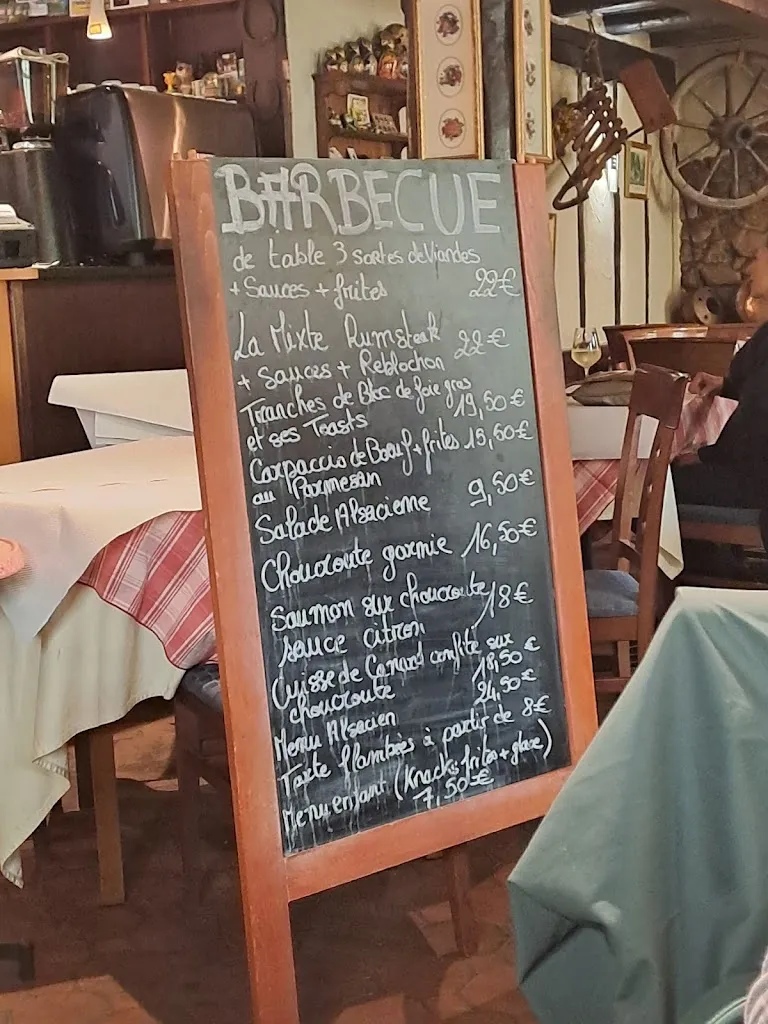 BARBECUE
de table 3 sortes de Viandes
+ Sauces + frites 22€
La Mixte Rumsteak
+ sauces + Reblochon 22€
Tranches de Bloc de foie gras
et ses Toasts 19,50€
Carpaccio de Boeuf + frites 15,60€
au Parmesan
Salade Alsacienne 9,50€
Choucroute garnie 16,50€
Saumon sur choucroute
sauce citron 18€
Cuisse de Canard confite sur
choucroute 18,50€
Menu Alsacien 24,50€
Tarte flambées à partir de 8€
Menu enfant (Knacks frites + glace)
7,50€